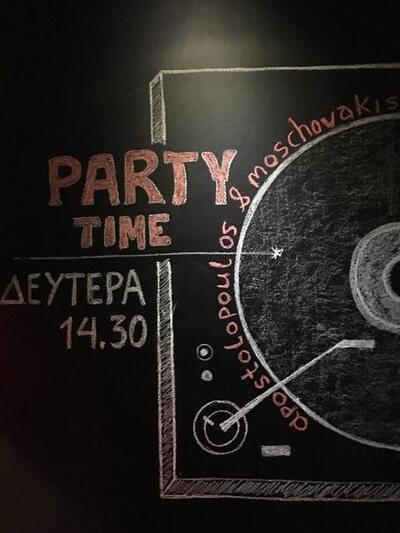 PARTY
TIME
ΔΕΥΤΕΡΑ
14.30
apostolopoulos & moschovakis